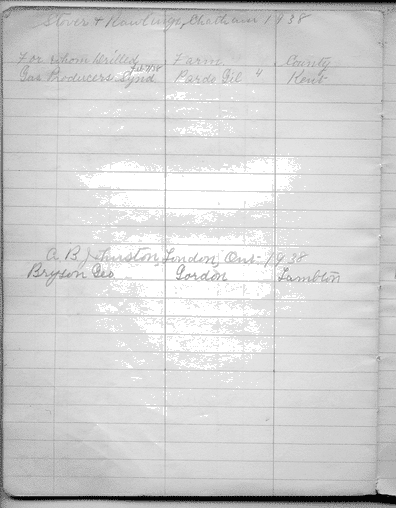 Stover & Rawlings, Chatham 1938
For whom Drilled Farm County
Gas Producers Synd Parde Gil 4 Kent
A B J Thurston, London, Ont 1938
Bryson Geo Gordon Lambton